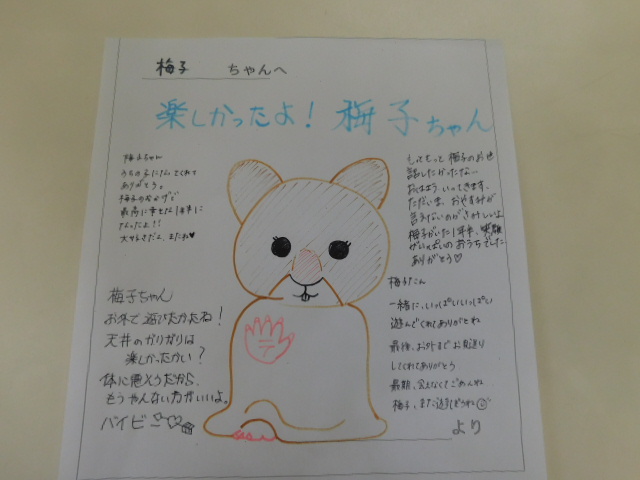 梅子 ちゃんへ
楽しかったよ! 梅子ちゃん
梅子ちゃん
うちの子になってくれて
ありがとう。
梅子のおかげで
最高に幸せな1年半に
なったよ!!
大好きだよ、またね♥
もっと 梅子のお世
話したかったな…
おはよう いってきます、
ただいま、おやすみが
言えないのがさみしいよ
梅子がいた1年半、笑顔
がいっぱいのおうちでした
ありがとう♡
梅子ちゃん
お外で遊びたかたね!
天井のかりかりは
楽しかったかい?
体に悪そうだから、
もうやんない方がいいよ。
バイビー
テ
梅子たん
一緒に、いっぱいいっぱい
遊んでくれてありがとね
最後、お外までお見送り
してくれてありがとう
最期、会えなくてごめんね
梅子、また遊ぼうね
より